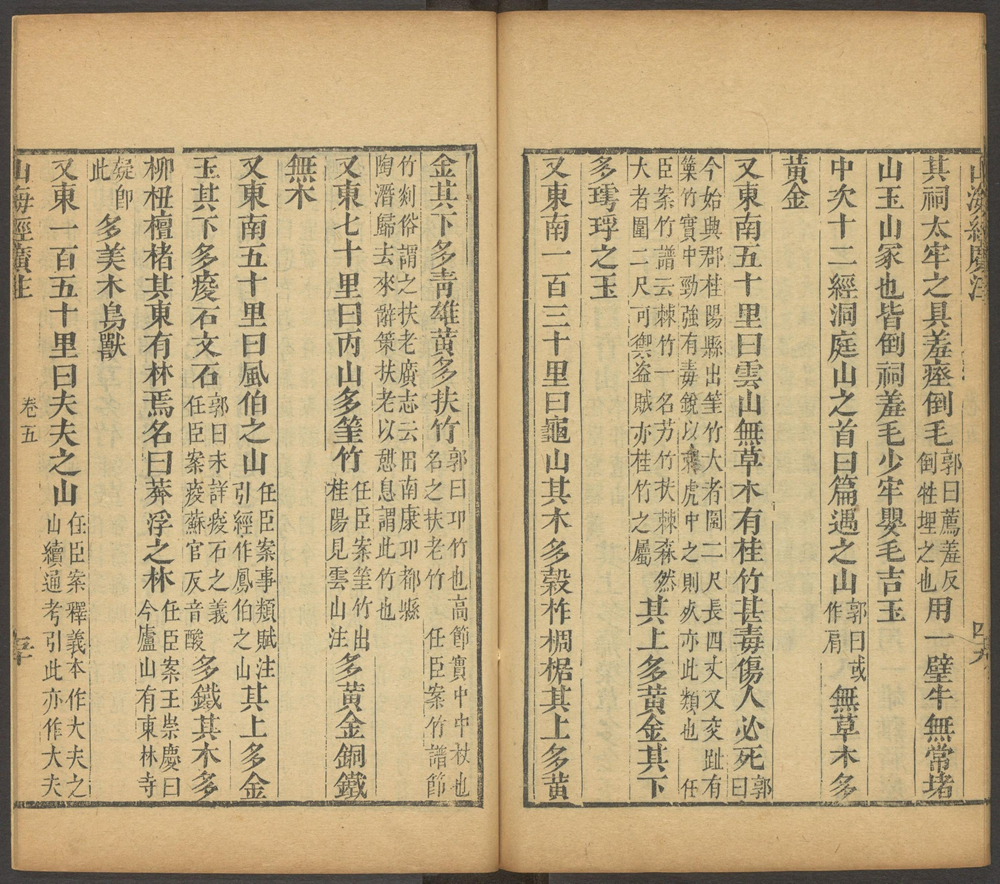 山海經廣注
四十九
其祠太牢之具羞瘞倒毛郭曰薦羞反倒牲埋之也用一璧牛無常堵
山玉山冢也皆倒祠羞毛少牢嬰毛吉玉
中次十二經洞庭山之首曰篇遇之山郭曰或作肩無草木多
黃金
又東南五十里曰雲山無草木有桂竹甚毒傷人必死郭曰
今始興郡桂陽縣出筀竹大者圍二尺長四丈又交趾有
篥竹實中勁強有毒銳以刺虎中之則死亦此類也　任
臣案竹譜云棘竹一名芳竹扶棘森然
大者圍二尺可禦盜賊亦桂竹之屬其上多黃金其下
多㻬琈之玉
又東南一百三十里曰龜山其木多榖柞椆椐其上多黃
金其下多青雄黃多扶竹郭曰卭竹也高節實中中杖也
名之扶老竹　任臣案竹譜節
竹剡俗謂之扶老廣志云出南康卭都縣
陶潛歸去來辭策扶老以憩息謂此竹也
又東七十里曰丙山多筀竹任臣案筀竹出桂陽見雲山注多黃金銅鐵
無木
又東南五十里曰風伯之山任臣案事類賦注引經作鳳伯之山其上多金
玉其下多痠石文石郭曰未詳痠石之義任臣案痠蘇官反音酸多鐵其木多
柳杻檀楮其東有林焉名曰莽浮之林任臣案王崇慶曰今廬山有東林寺
疑卽此多美木鳥獸
又東一百五十里曰夫夫之山任臣案釋義本作大夫之山續通考引此亦作大夫
山海經廣注
卷五
五十